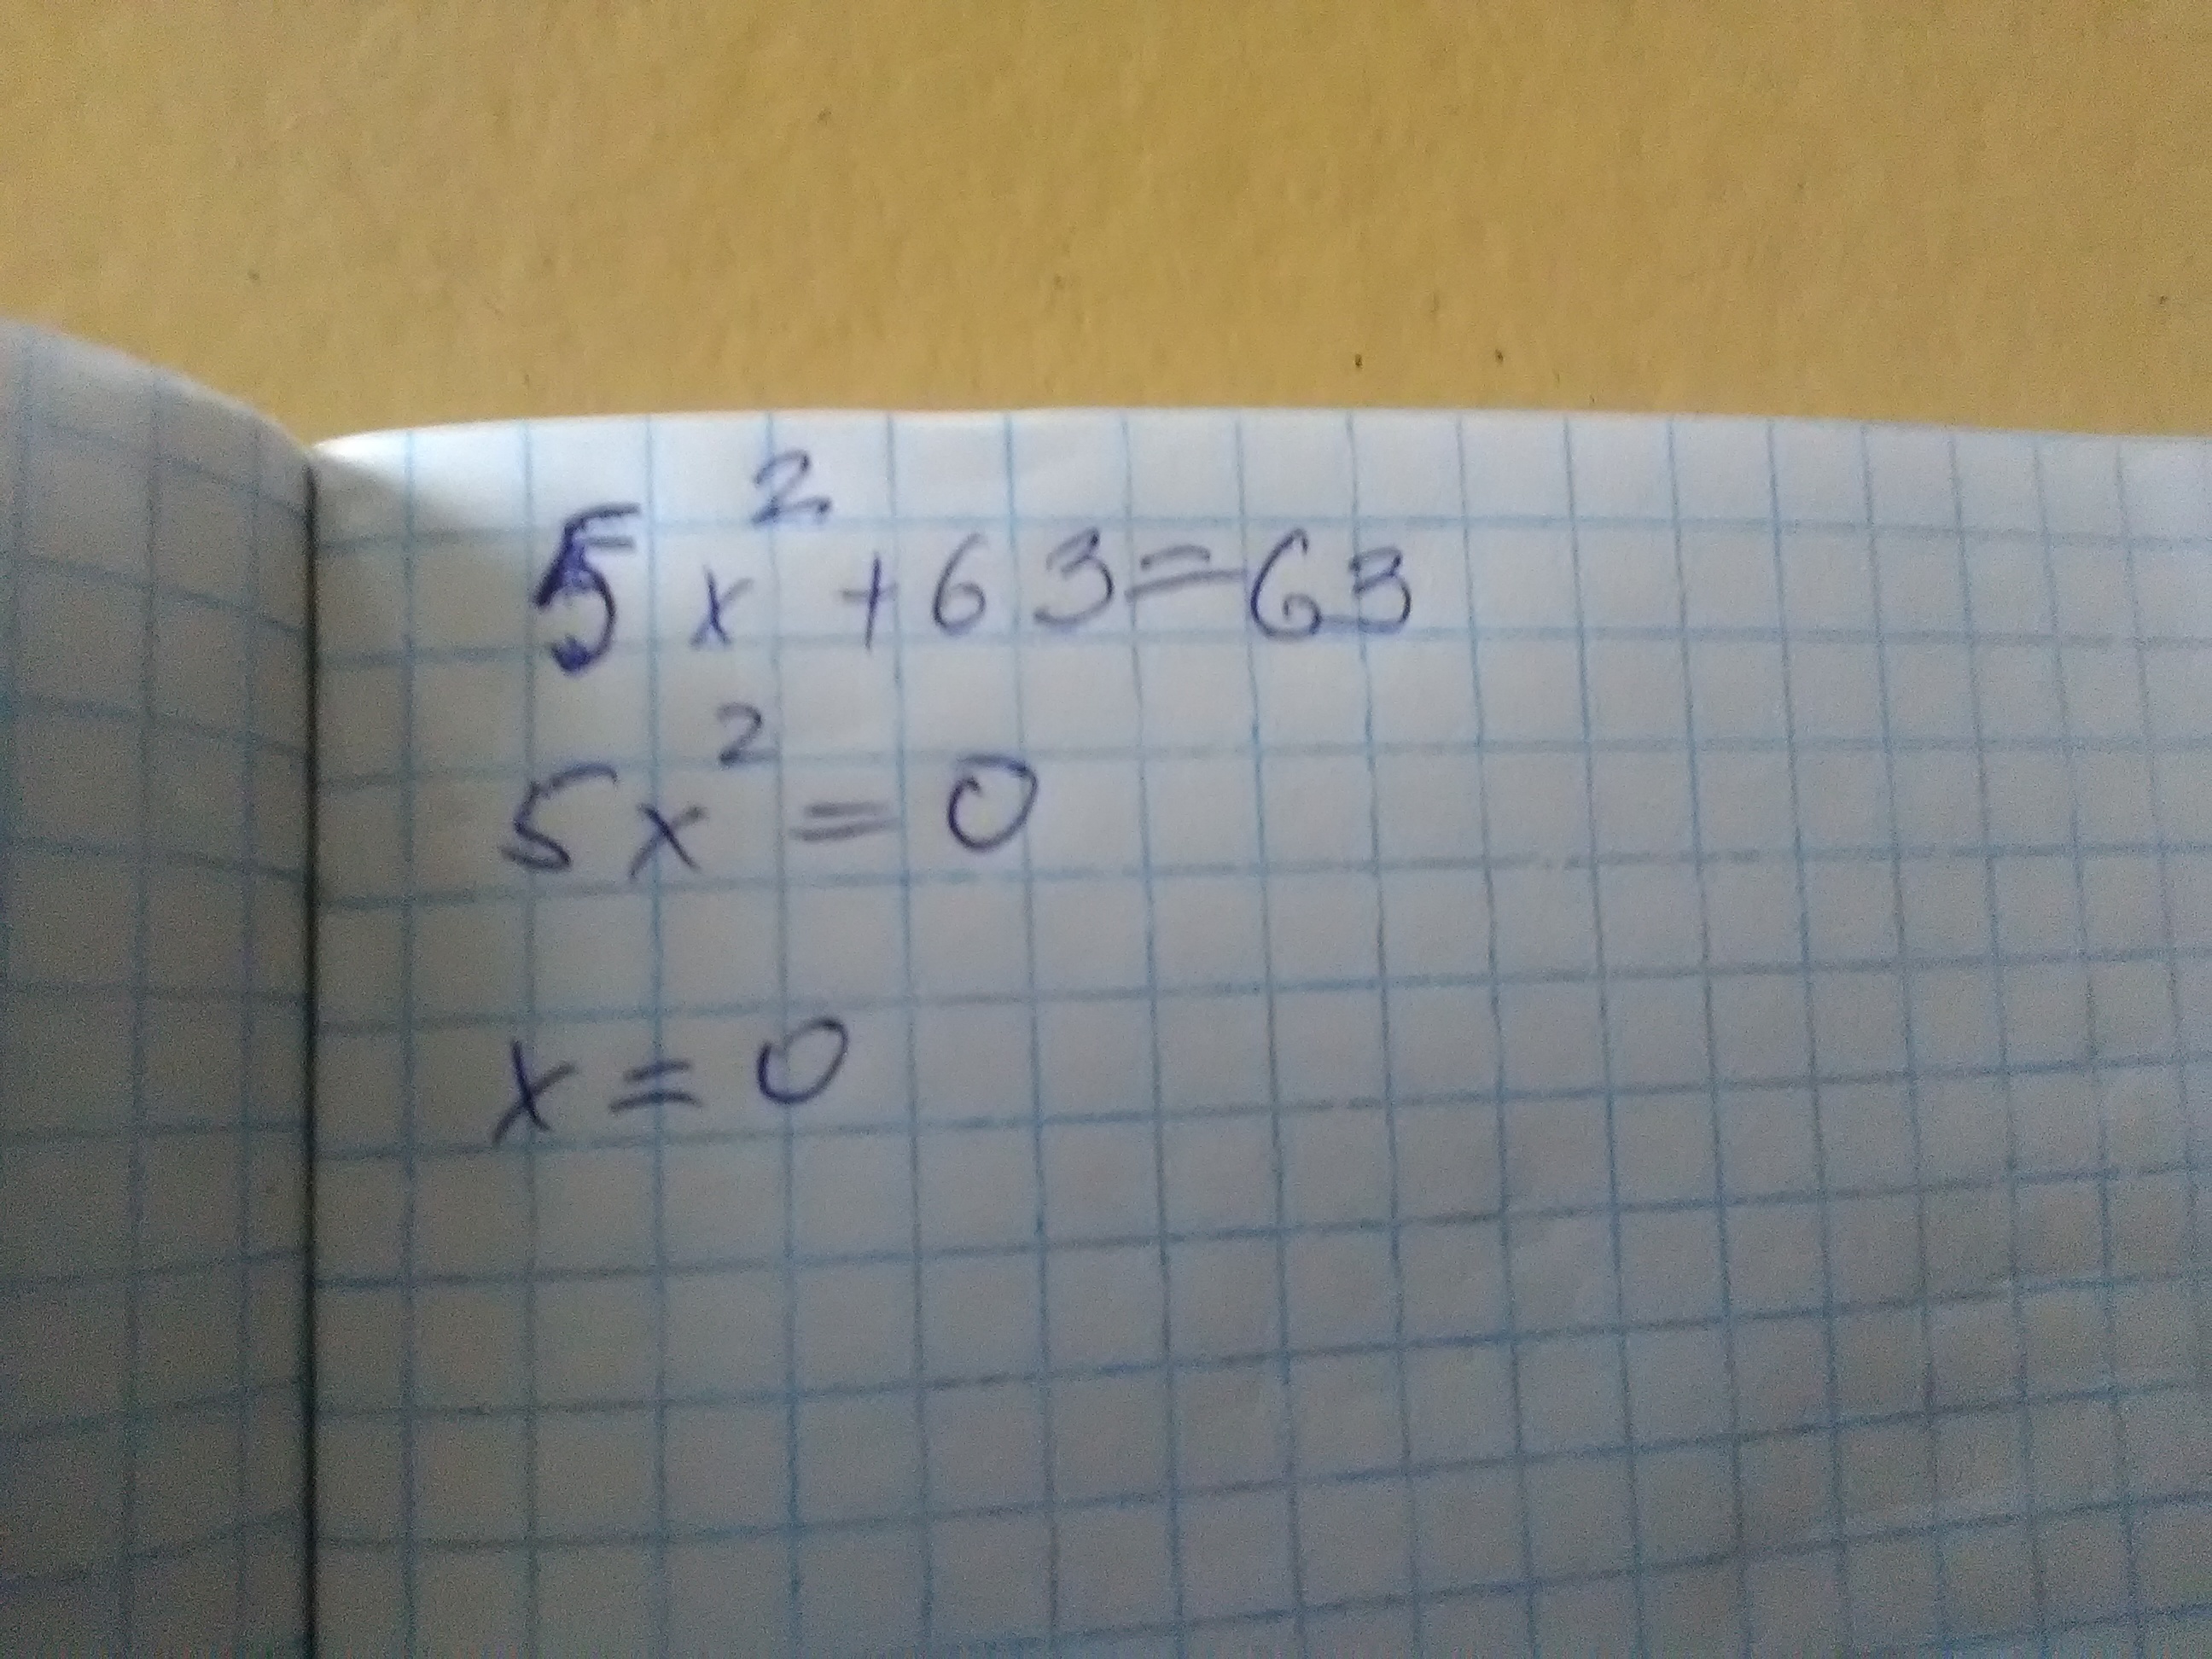 5x² + 63 = 63
5x² = 0
x = 0